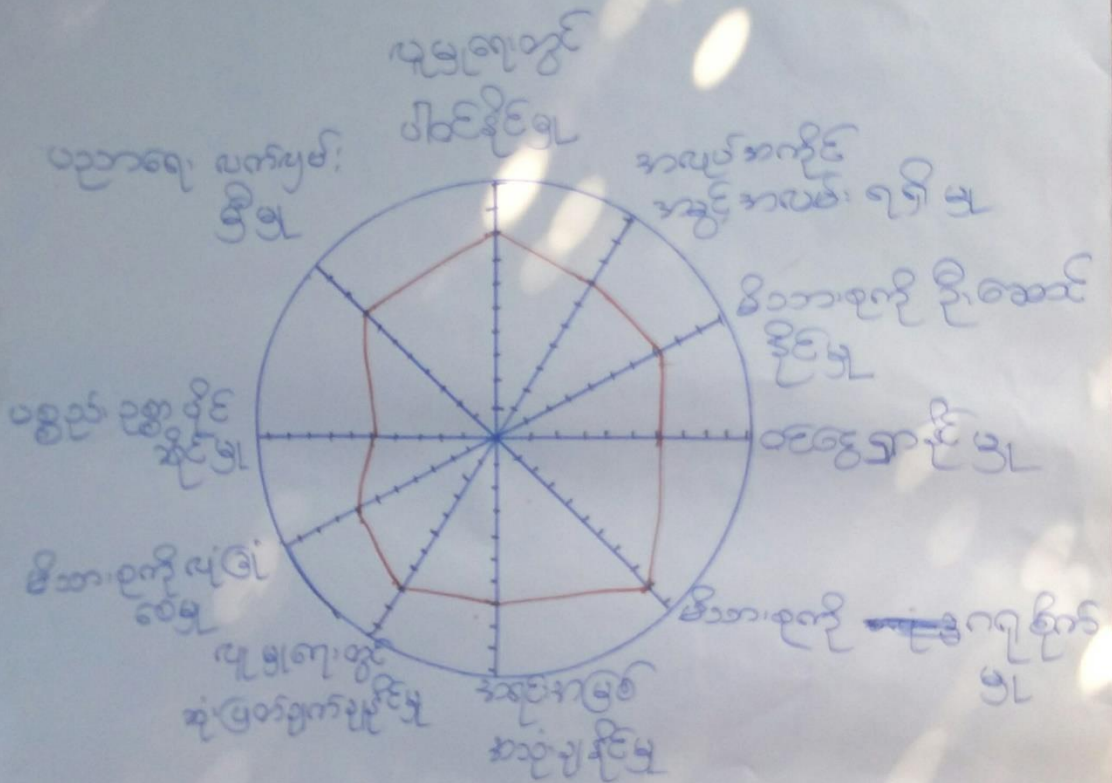 လူမှုရေးတွင်
ပါဝင်နိုင်မှု
အလုပ်အကိုင်
အခွင့်အလမ်း ရရှိမှု
မိသားစုကို ဦးဆောင်
နိုင်မှု
ဝင်ငွေရှာနိုင်မှု
မိသားစုကို ဂရုစိုက်
မှု
အရင်းအမြစ်
အသုံးချနိုင်မှု
လူမှုရေးတွင်
ဆုံးဖြတ်ချက်ချနိုင်မှု
မိသားစုကို လုံခြုံ
စေမှု
ပစ္စည်းဥစ္စာ ပိုင်
ဆိုင်မှု
ပညာရေး လက်လှမ်း
မှီမှု